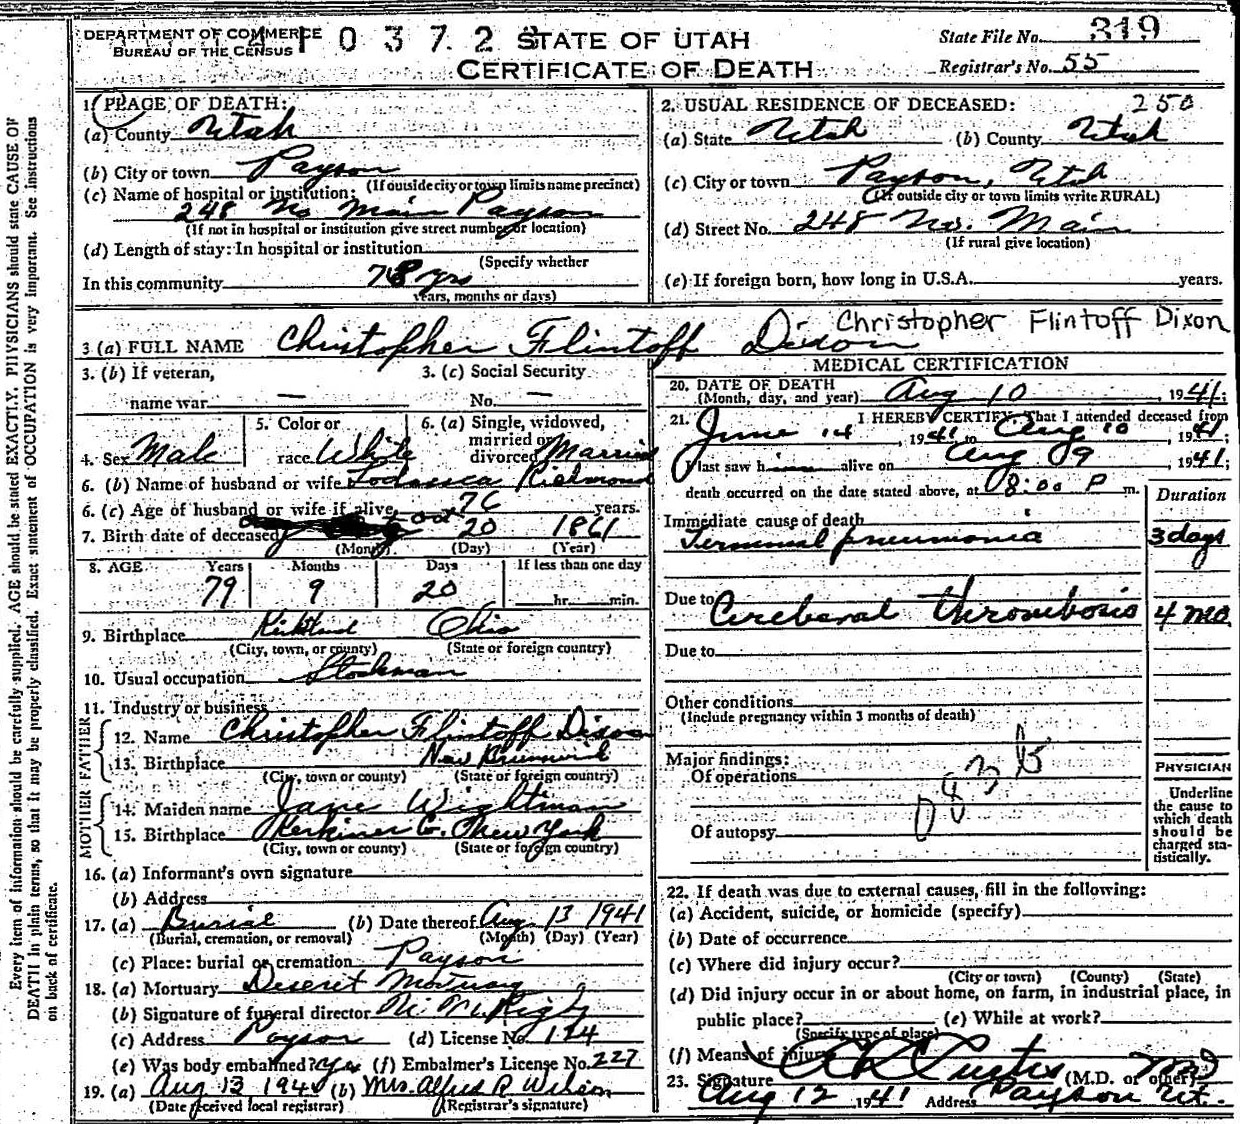 DEPARTMENT OF COMMERCE
BUREAU OF THE CENSUS
1 0 3 7 2
STATE OF UTAH
CERTIFICATE OF DEATH
State File No. 319
Registrar's No. 55
Every item of information should be carefully supplied. AGE should be stated EXACTLY. PHYSICIANS should state CAUSE OF
DEATH in plain terms, so that it may be properly classified. Exact statement of OCCUPATION is very important. See instructions
on back of certificate.
1. PLACE OF DEATH:
(a) County Utah
(b) City or town Payson
(If outside city or town limits name precinct)
(c) Name of hospital or institution:
248 No Main Payson
(If not in hospital or institution give street number or location)
(d) Length of stay: In hospital or institution
(Specify whether
In this community 78 yrs
years, months or days)
2. USUAL RESIDENCE OF DECEASED: 250
(a) State Utah (b) County Utah
(c) City or town Payson, Utah
(If outside city or town limits write RURAL)
(d) Street No. 248 No. Main
(If rural give location)
(e) If foreign born, how long in U.S.A. years.
3 (a) FULL NAME Christopher Flintoff Dixon
Christopher Flintoff Dixon
3. (b) If veteran,
name war —
3. (c) Social Security
No. —
4. Sex Male
5. Color or
race White
6. (a) Single, widowed,
married or
divorced Married
6. (b) Name of husband or wife Richmond
6. (c) Age of husband or wife if alive 76 years.
7. Birth date of deceased Oct 20 1861
(Month) (Day) (Year)
8. AGE Years Months Days If less than one day
79 9 20 hr. min.
9. Birthplace Kirtland Ohio
(City, town, or county) (State or foreign country)
10. Usual occupation Stockman
11. Industry or business
FATHER
12. Name Christopher Flintoff Dixon
13. Birthplace New Brunswick
(City, town or county) (State or foreign country)
MOTHER
14. Maiden name Jane Wightman
15. Birthplace Herkimer Co. New York
(City, town or county) (State or foreign country)
16. (a) Informant's own signature
(b) Address
17. (a) Burial (b) Date thereof Aug 13 1941
(Burial, cremation, or removal) (Month) (Day) (Year)
(c) Place: burial or cremation Payson
18. (a) Mortuary Deseret Mortuary
(b) Signature of funeral director Rigby
(c) Address Payson (d) License No. 124
(e) Was body embalmed? Yes (f) Embalmer's License No. 227
19. (a) Aug 13, 1941 (b) Mrs. Alfred R. Wilson
(Date received local registrar) (Registrar's signature)
MEDICAL CERTIFICATION
20. DATE OF DEATH
(Month, day, and year) Aug 10, 1941;
21. I HEREBY CERTIFY, That I attended deceased from
June 14, 1941 to Aug 10, 1941
I last saw him alive on Aug 09 1941;
death occurred on the date stated above, at 08:00 P m.
Duration
Immediate cause of death
Terminal pneumonia 3 days
Due to Cerebral thrombosis 4 mo
Due to
Other conditions
(Include pregnancy within 3 months of death)
Major findings:
Of operations
083 b
Of autopsy
PHYSICIAN
Underline
the cause to
which death
should be
charged sta-
tistically.
22. If death was due to external causes, fill in the following:
(a) Accident, suicide, or homicide (specify)
(b) Date of occurrence
(c) Where did injury occur?
(City or town) (County) (State)
(d) Did injury occur in or about home, on farm, in industrial place, in
public place? (e) While at work?
(Specify type of place)
(f) Means of injury
23. Signature Curtis (M.D. or other) MD
Aug 12 1941 Address Payson Ut.